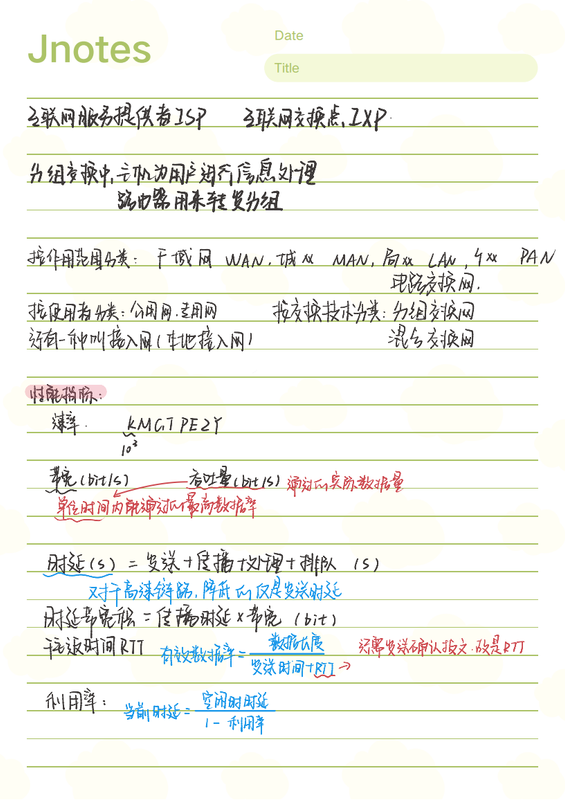 Jnotes
Date
Title
互联网服务提供者ISP 互联网交换点IXP.
分组交换中,主机为用户进行信息处理
路由器用来转发分组
按作用范围分类: 广域网 WAN, 城xx MAN, 局xx LAN, 个xx PAN
电路交换网.
按使用者分类: 公用网.专用网 按交换技术分类: 分组交换网
还有一种叫接入网(本地接入网) 混合交换网
性能指标:
速率. KMGTPEZY
10³
带宽(bit/s) 吞吐量(bit/s) 通过的实际数据量
单位时间内能通过的最高数据率
时延(s) = 发送+传播+处理+排队 (s)
对于高速链路,降低的仅是发送时延
时延带宽积 = 传播时延×带宽 (bit)
往返时间RTT 有效数据率= 数据长度 / 发送时间+RTT → 还需发送确认报文.故是RTT
利用率: 当前时延= 空闲时时延 / 1-利用率